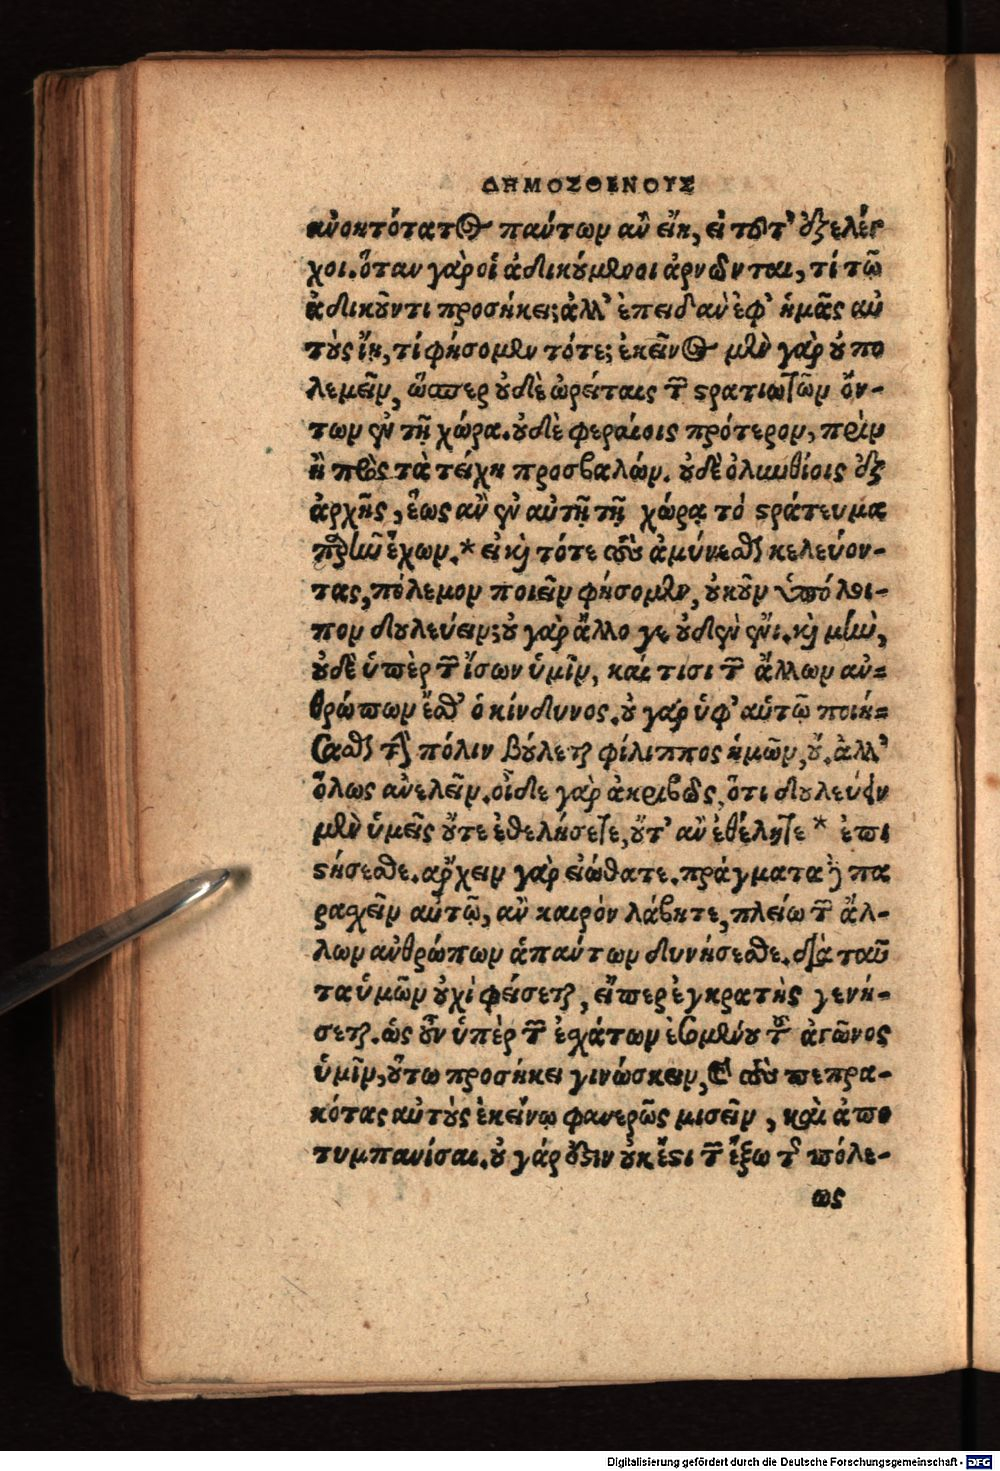 ΔΗΜΟΣΘΕΝΟΥΣ
ανοητότατος πάντων ἂν εἴη, εἰ τοῦτ' ἐξελέγ
χοι. ὅταν γὰρ οἱ ἀδικούμενοι ἀρνῶνται, τί τῷ
ἀδικοῦντι προσήκει; ἀλλ' ἐπειδ' ἂν ἐφ' ἡμᾶς αὐ
τοὺς ἴῃ, τί φήσομεν τότε; ἐκεῖνος μὲν γὰρ οὐ πο
λεμεῖν, ὥσπερ οὐδὲ ὠρείταις τῶν στρατιωτῶν ὄν-
των ἐν τῇ χώρα. οὐδὲ φεραίοις πρότερον, πρὶν
ἢ πρὸς τὰ τείχη προσβαλών. οὐδὲ ὀλυνθίοις ἐξ
ἀρχῆς, ἕως ἂν ἐν αὐτῇ τῇ χώρᾳ τὸ στράτευμα
παρῆν ἔχων. * εἰ καὶ τότε τοὺς ἀμύνεσθαι κελεύον-
τας, πόλεμον ποιεῖν φήσομεν, οὐκοῦν ὑπόλοι-
πον δουλεύειν; οὐ γὰρ ἄλλο γε οὐδὲν ἔνι. καὶ μὴν,
οὐδὲ ὑπὲρ τῶν ἴσων ὑμῖν, καί τισι τῶν ἄλλων ἀν-
θρώπων ἔσθ' ὁ κίνδυνος. οὐ γὰρ ὑφ' αὑτῷ ποιή-
σασθαι τὴν πόλιν βούλεται φίλιππος ἡμῶν, οὔ. ἀλλ'
ὅλως ἀνελεῖν. οἶδε γὰρ ἀκριβῶς, ὅτι δουλεύειν
μὲν ὑμεῖς οὔτε ἐθελήσετε, οὔτ' ἂν ἐθέλητε * ἐπι
στήσεσθε. ἄρχειν γὰρ εἰώθατε. πράγματα δὲ πα
ρασχεῖν αὐτῷ, ἂν καιρὸν λάβητε, πλείω τῶν ἄλ-
λων ἀνθρώπων ἁπάντων δυνήσεσθε. διὰ ταῦ
τα ὑμῶν οὐχὶ φείσεται, εἴπερ ἐγκρατὴς γενή-
σεται. ὡς οὖν ὑπὲρ τῶν ἐσχάτων ἐσομένου τοῦ ἀγῶνος
ὑμῖν, οὕτω προσήκει γινώσκειν, καὶ τοὺς πεπρα-
κότας αὑτοὺς ἐκείνῳ φανερῶς μισεῖν, καὶ ἀπο
τυμπανίσαι. οὐ γάρ ἐστιν οὐκ ἔστι τῶν ἔξω τῆς πόλε-
ως
Digitalisierung gefördert durch die Deutsche Forschungsgemeinschaft - DFG